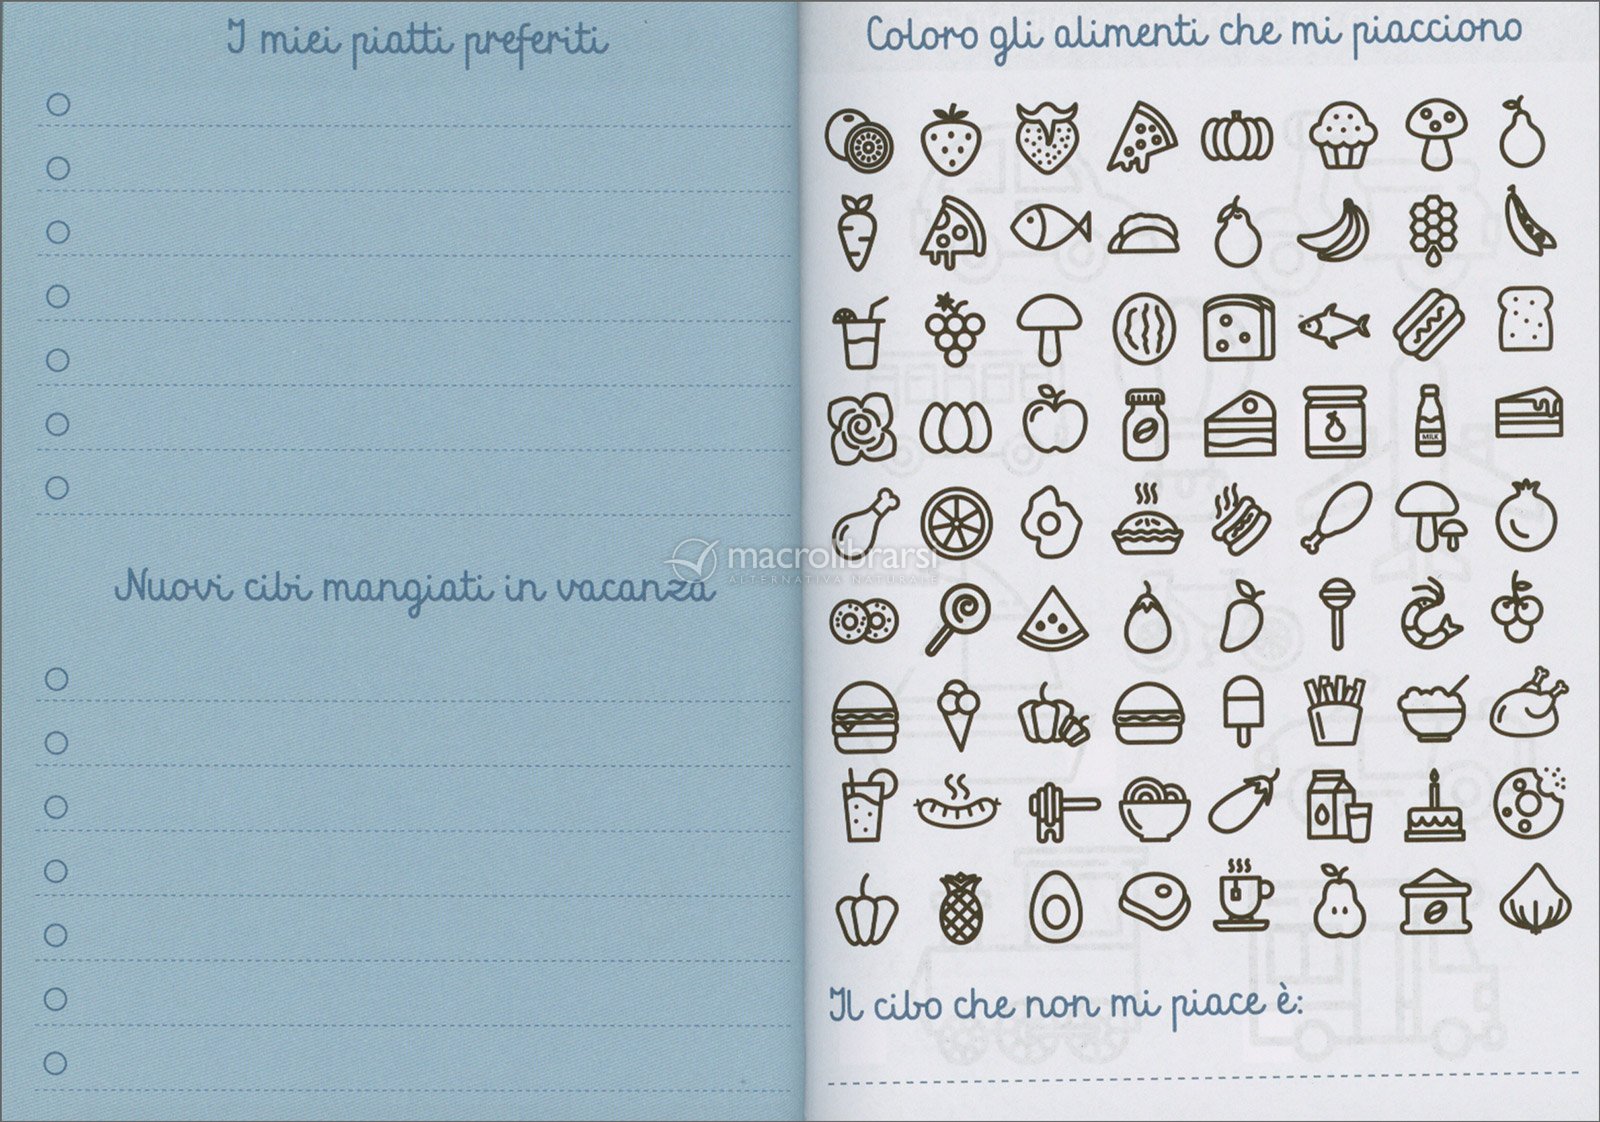 I miei piatti preferiti
Nuovi cibi mangiati in vacanza
macrolibrarsi
ALTERNATIVA NATURALE
Coloro gli alimenti che mi piacciono
MILK
Il cibo che non mi piace è: